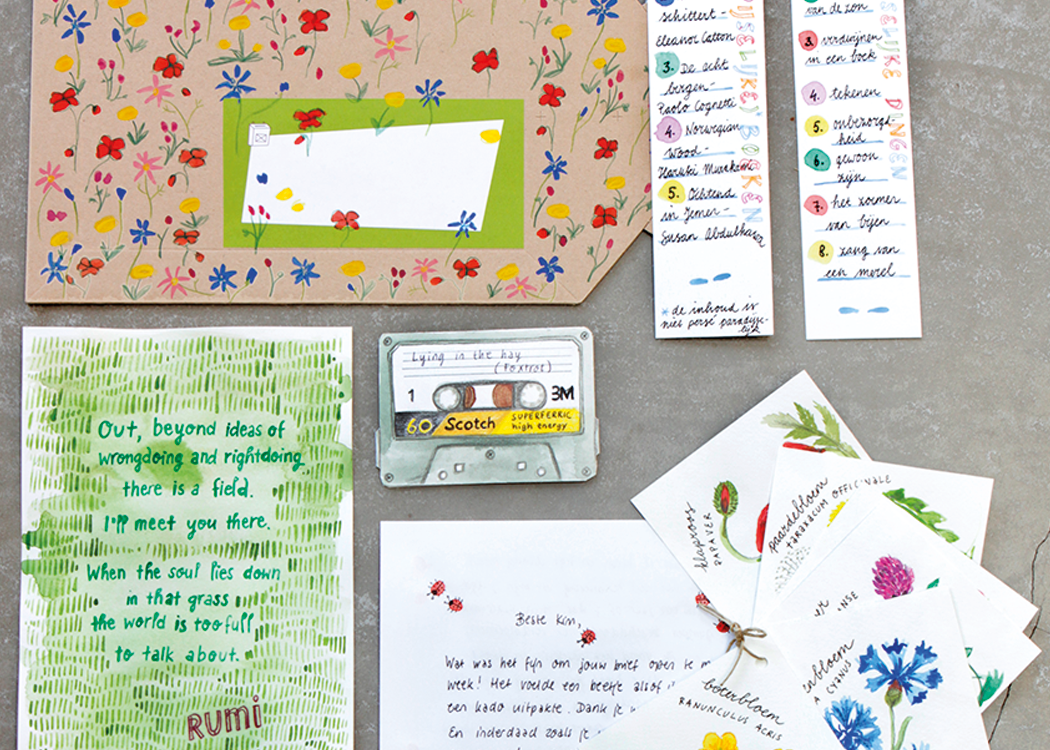 schittert-
Eleanor Catton
3. De acht
bergen-
Paolo Cognetti
4. Norwegian
Wood-
Haruki Murakami
5. Ochtend
in Jemen-
Susan Abdulhasan
* de inhoud is
niet persé paradijse-
lijk
van de zon
3. verdwijnen
in een boek
4. tekenen
5. onbezorgd-
heid
6. gewoon
zijn
7. het zoemen
van bijen
8. zang van
een merel
DINGEN
Out, beyond ideas of
wrongdoing and rightdoing
there is a field.
I'll meet you there.
When the soul lies down
in that grass
the world is too full
to talk about.
RUMI
Lying in the hay
(Foxtrot)
1
3M
60 Scotch SUPERFERRIC
high energy
Beste Kim,
Wat was het fijn om jouw brief open te m
week! Het voelde een beetje alsof i
een kado uitpakte. Dank je w
En inderdaad zoals je
klaproos
PAPAVER
paardebloem
TARAXACUM OFFICINALE
enbloem
A CYANUS
boterbloem
RANUNCULUS ACRIS